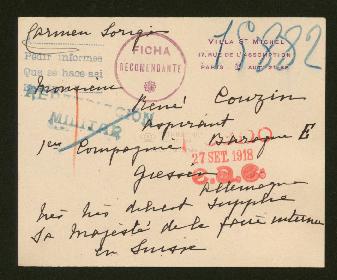 Carmen Sorigo
15882
VILLA ST MICHEL
17, RUE DE L'ASSOMPTION
PARIS
FICHA
RECOMENDANTE
Pedir informes
Que se hace así
Monsieur
René Couzin
MILITAR
aspirant
1ère Compagnie Baraque E
27 SET. 1918
Giessen
Allemagne
très très
supplie
Sa Majesté de le faire interner
en Suisse